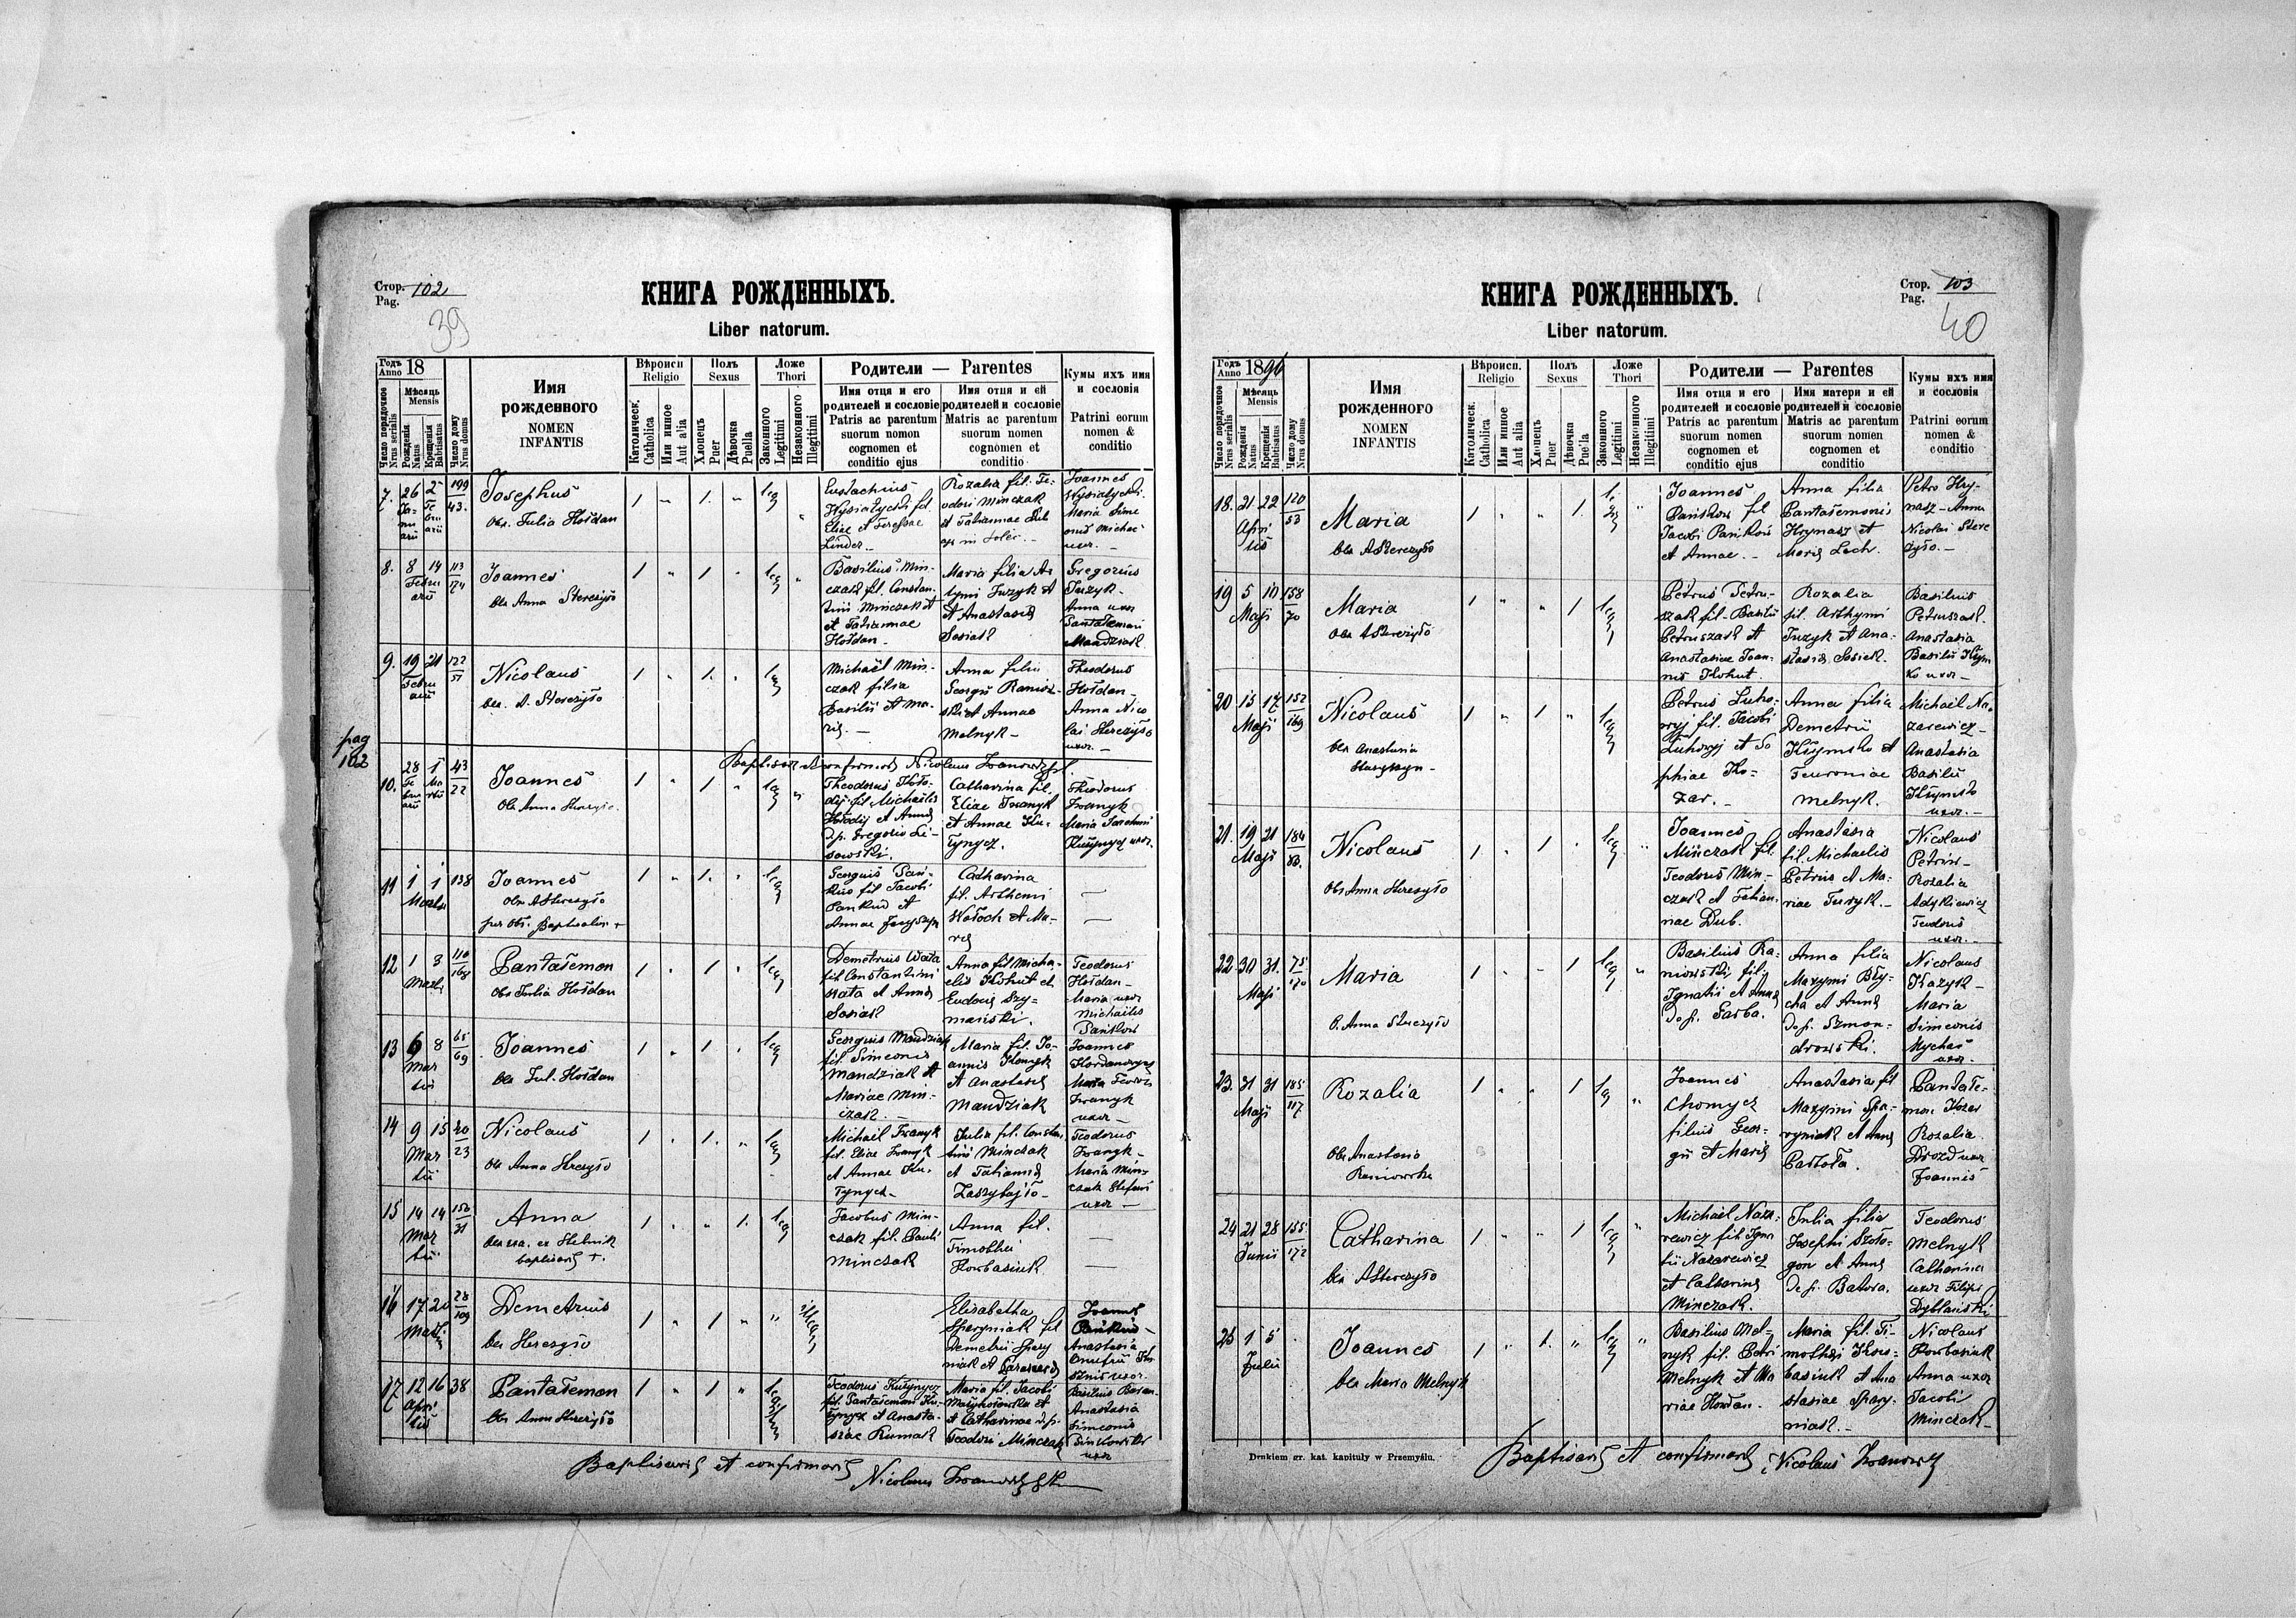 Стор. 102
Pag.
39
КНИГА РОЖДЕННЫХЪ.
Liber natorum.
Годъ 18
Anno
Мѣсяць
Mensis
Число порядочное
Nrus serialis
Рожденія
Natus
Крещенія
Babtisatus
Число дому
Nrus domus
Имя
рожденного
NOMEN
INFANTIS
Вѣроисп
Religio
Католическ.
Catholica
Или инное
Aut alia
Полъ
Sexus
Хлопець
Puer
Дѣвочка
Puella
Ложе
Thori
Законного
Legtimi
Незаконного
Illegitimi
Родители — Parentes
Имя отця и его
родителей и сословіе
Patris ac parentum
suorum nomen
cognomen et
conditio ejus
Имя отця и ей
родителей и сословіе
Matris ac parentum
suorum nomen
cognomen et
conditio
Кумы ихъ имя
и сословія
Patrini eorum
nomen &
conditio
7. 26 2 199
43.
Josephus
Obs. Julia Hołdan
1 " 1. " leg "
Eustachius
fil.
Eliae et Teressae
Linder -
Rozalia fil. Te-
odori Minczak
et Tatiannae Dub
Joannes
Maria Sime
onis
uxor. -
8. 8 14 113
174
Februarii
Joannes
bba Anna Sterczyło
1 " 1 " leg "
Basilius Min-
czak fil. Constan-
tini Minczak et
et Tatiannae
Hołdan -
Maria filia Ar
tymi Juzyk et
et Anastasiae
Sosiak
Gregorius
Juzyk -
Anna uxor
Pantalemoni
Mandziak
9. 19 21 122
51
Februarii
Nicolaus
bba. A. Sterczyło
1 " 1. " leg
Michaël Min-
czak filia
Basilii et Ma-
riae. -
Anna filia
Georgii Raniow-
ski et Annae
Melnyk -
Theodorus
Hołdan -
Anna Nico
lai Sterczyło
uxor. -
pag
102
Baptisavi et confirmavi Nicolaus
10. 28 1 43
22
Joannes
Obs Anna Sterczyło
1 " 1 " leg "
Theodorus Koło-
dij fil Michaëlis
Kołodij et Annae
d.p. Gregorio Li-
sowski.
Catharina fil.
Eliae Iwanyk
et Annae Ku-
tynycz.
Theodorus
Iwanyk
Maria
Kutynycz uxor.
11 1 1 138
Martii
Joannes
Obs A Sterczyło
per Obs. Baptisatus +
1 " 1. " leg
Georgius Pań-
kiw fil Jacobi
Pankiw et
Annae
Catharina
fil. Arthemi
Wołoch et Ma-
riae
—
—
12 1 3 110
168
Martii
Pantałemon
Obs Julia Hołdan
1 " 1 " leg
Demetrius Wata
fil Constantini
Wata et Annae
Sosiak
Anna fil Micha-
elis Kohut et
Eudoxiae Szy-
mański.
Teodorus
Hołdan -
Maria uxor
Michaëlis
Pańkow
13 6 8 65
69
Martii
Joannes
bba Jul. Hołdan
1 " 1 " leg
Georgius Mandziak
fil. Simeonis
Mandziak et
Mariae Min-
czak. -
Maria fil. Jo-
annis
et Anastasiae
Mandziak
Joannes
Maria Teodori
Iwanyk
uxor -
14 9 15 20
23
Martii
Nicolaus
Obs Anna Sterczyło
1 " 1. " leg
Michaël Iwanyk
fil. Eliae Iwanyk
et Annae Ku-
tynycz -
Julia fil. Constan
tini Minczak
et Tatiannae
Zaszytajło -
Teodorus
Iwanyk -
Maria Min-
czak Stefani
uxor -
15 14 14 150
31
Martii
Anna
baptisavit +.
1 " " 1. leg
Jacobus Min-
czak fil. Pauli
Minczak
Anna fil.
Timothei
Horbasiuk
—
—
16 17 20 28
109
Martii
Demetrius
bba Sterczyło
1 " 1 " " illeg
Elisabetha
Sparyniak fil
Demetrii Spary
niak et
Joannes
Pańkiw -
Anastasia
Onufrii
uxor -
17 12 16 38
Aprilis
Pantałemon
bba Anna Sterczyło
1 " 1 " leg
Teodorus Kutynycz
fil. Pantałemoni Ku-
tynycz et Anasta-
siae Rumak
Maria fil. Jacobi
et Catharinae d.p.
Teodori Minczak
Basilius
Anastasia
Simeonis
uxor
Baptisavi et confirmavi
Nicolaus
Стор. 103
Pag.
40
КНИГА РОЖДЕННЫХЪ.
Liber natorum.
Годъ 1896
Anno
Мѣсяць
Mensis
Число порядочное
Nrus serialis
Рожденія
Natus
Крещенія
Babtisatus
Число дому
Nrus domus
Имя
рожденного
NOMEN
INFANTIS
Вѣроисп.
Religio
Католическ.
Catholica
Или инное
Aut alia
Полъ
Sexus
Хлопець
Puer
Дѣвочка
Pu'la
Ложе
Thori
Законного
Legtimi
Незаконного
Illegitimi
Родители — Parentes
Имя отця и его
родителей и сословіе
Patris ac parentum
suorum nomen
cognomen et
conditio ejus
Имя матери и ей
родителей и сословіе
Matris ac parentum
suorum nomen
cognomen et
conditio
Кумы ихъ имя
и сословія
Patrini eorum
nomen &
conditio
18. 21 22 120
53
Aprilis
Maria
bba A Sterczyło
1 " " 1. leg "
Joannes
Pańkow fil
Jacobi Pańkow
et Annae. -
Anna filia
Pantałemonis
Hrynasz et
Mariae Lech.
Petro Hry-
nasz - Anna
Nicolai Stere
żyło. -
19 5 10 158
70
Maji
Maria
Obs A Sterczyło
1 " " 1 leg
Petrus Petru-
szak fil. Basilii
Petruszak et
Anastasiae Joan-
nis Kohut.
Rozalia
fil. Arthymi
Juzyk et Ana-
stasiae Sosiek.
Basilius
Petruszak.
Anastasia
Basilii Klym
ko uxor -
20 15 17 152
169
Maji
Nicolaus
bba Anastasia
1 " 1 " leg
Petrus Luho-
wyj fil. Jacobi
Luhowyj et So
phiae Ko-
zar. -
Anna filia
Demetrii
Klymsko et
Feuroniae
Melnyk.
Michaël Na-
zarewicz -
Anastasia
Basilii
Klymsko
uxor. -
21. 19 21 184
83.
Maji
Nicolaus
Obs Anna Sterczyło
1 " 1 " leg "
Joannes
Minczak fil.
Teodorus Min-
czak et Tatian-
nae Dub.
Anastasia
fil. Michaelis
Petriw et Ma-
riae Juzyk. -
Nicolaus
Petriw -
Rozalia
Adykiewicz
Teodori
uxor. -
22 30 31. 75
170
Maji
Maria
b. Anna Sterczyło
1 " " 1 leg "
Basilius Ra-
niowski fil.
Ignatii et Annae
de p. Sarba.
Anna filia
Maxymi Bły-
cha et Annae
de p. Szmon-
drowski.
Nicolaus
Kazyk -
Maria
Simeonis
Mychas
uxor.
23. 31 31 185
117
Maji
Rozalia
Obs Anastasia
Raniowska
1 " " 1 leg "
Joannes
Chomycz
filius Geor-
gii et Mariae
Anastasia fil
Maxymi Spa-
ryniak et Annae
Partoła.
Pantałe-
mon Kozar
Rozalia
Drozd uxor
Joannis
24 21 28 155
172
Junii
Catharina
bba A Sterczyło
1 " " 1 leg "
Michaël Naza-
rewicz fil Igna
tii Nazarewicz
et Catharinae
Minczak.
Julia filia
Josephi Szoło-
gon et Annae
de p. Batora.
Teodorus
Melnyk
Catharina
uxor Filipi
Dyblański
25 1 5
Julii
Joannes
bba Maria Melnyk
1 " 1. " leg "
Basilius Mel-
nyk fil. Petri
Melnyk et Ma
riae Hołdan.
Maria fil. Ti-
mothei Horo-
basiuk et Ana
stasiae Spary-
niak. -
Nicolaus
Horbasiuk
Anna uxor
Jacobi
Minczak -
Drukiem gr. kat. kapituły w Przemyślu.
Baptisavi et confirmavi Nicolaus